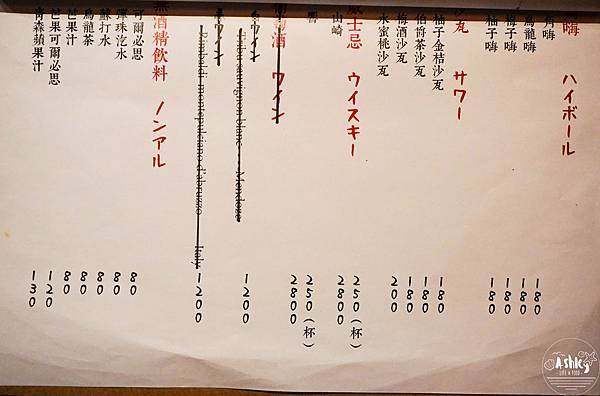 嗨 ハイボール
角嗨 180
烏龍嗨 180
梅子嗨 180
柚子嗨 180
沙瓦 サワー
柚子金桔沙瓦 180
伯爵茶沙瓦 180
梅酒沙瓦 180
水蜜桃沙瓦 200
威士忌 ウイスキー
山崎 250(杯) 2800
響 250(杯) 2800
葡萄酒 ワイン
白ワイン
sauvignon blanc Mendoza 1200
赤ワイン
montepulciano d'abruzzo Italy 1200
無酒精飲料 ノンアル
可爾必思 80
彈珠汽水 80
蘇打水 80
烏龍茶 80
芒果汁 80
芒果可爾必思 120
青森蘋果汁 130
Ashley
LIFE & FOOD